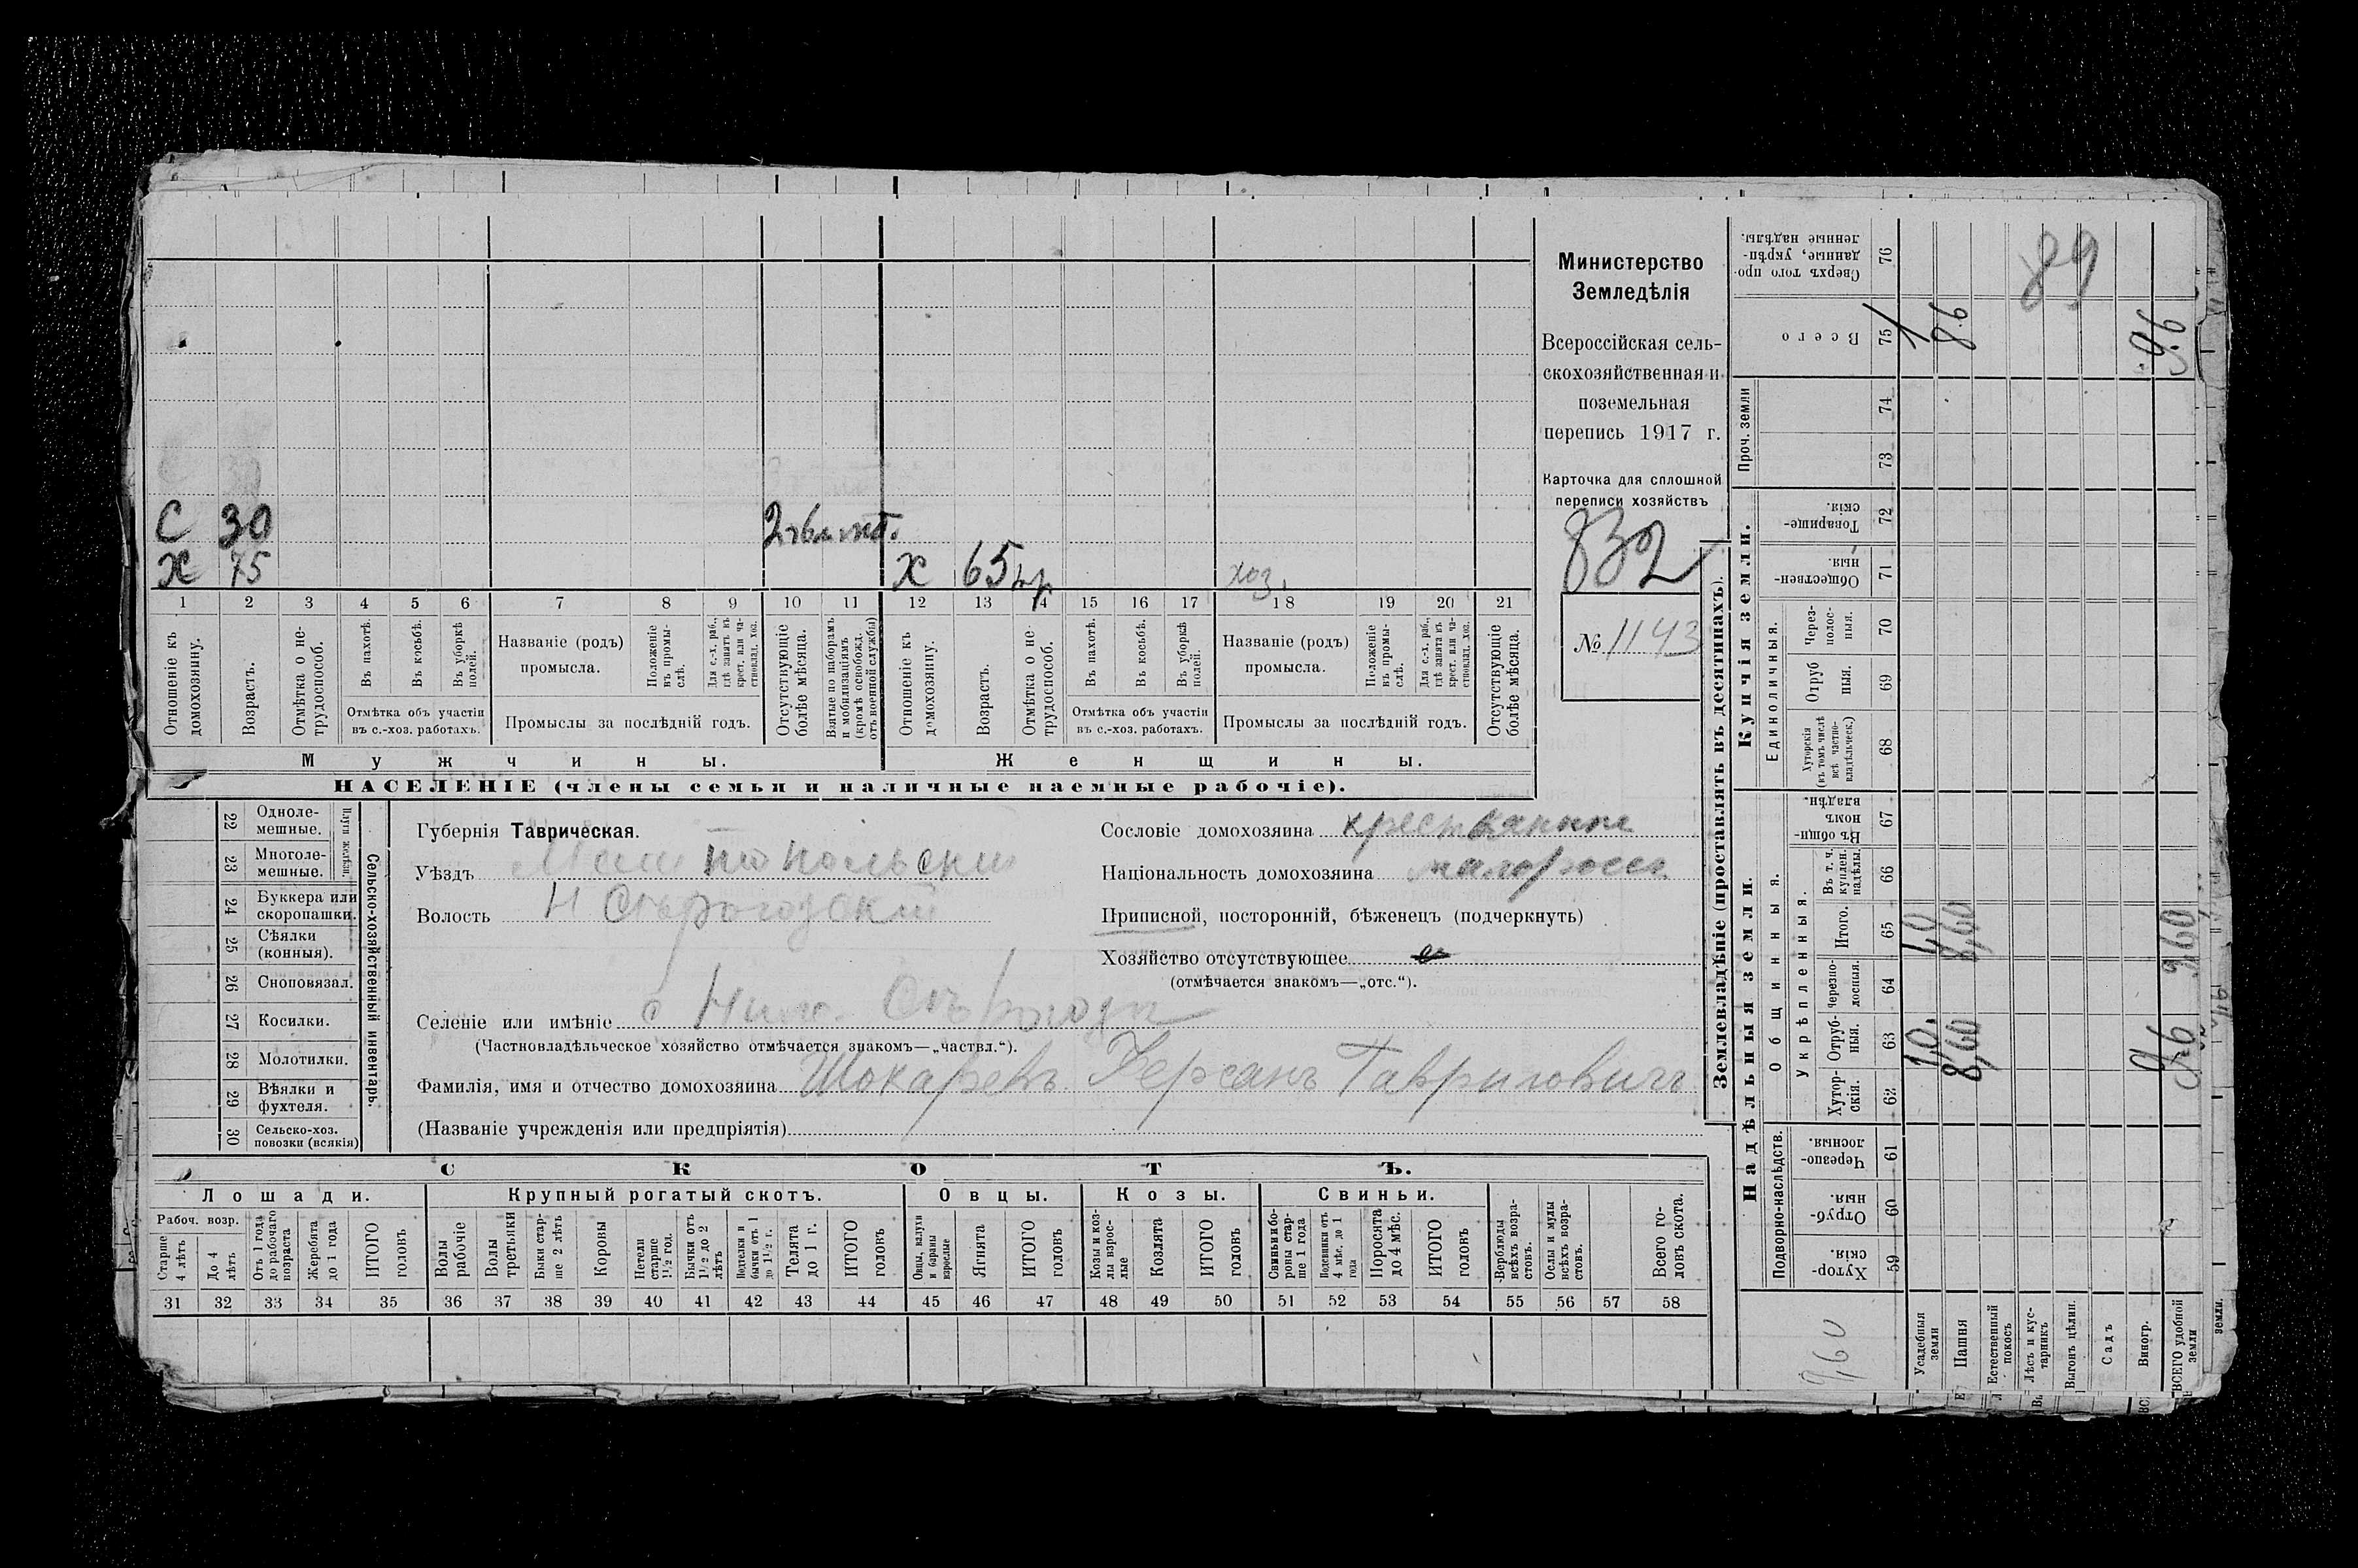 Министерство
Земледѣлія
Всероссійская сель-
скохозяйственная и
поземельная
перепись 1917 г.
Карточка для сплошной
переписи хозяйствъ
832
№ 1143
С 30
Х 75 Х 65 хоз.
1 2 3 4 5 6 7 8 9 10 11 12 13 14 15 16 17 18 19 20 21
Отношеніе къ домохозяину.
Возрастъ.
Отмѣтка о не-трудоспособ.
Въ пахотѣ.
Въ косьбѣ.
Въ уборкѣ полей.
Отмѣтка объ участіи
въ с.-хоз. работахъ.
Названіе (родъ)
промысла.
Положеніе въ промы-слѣ.
Для с.-х. раб., гдѣ занятъ въ крест. или ча-стновлад. хоз.
Промыслы за послѣдній годъ.
Отсутствующіе болѣе мѣсяца.
Взятые по наборамъ и мобилизаціямъ (кромѣ освобожд. отъ военной службы)
Отношеніе къ домохозяину.
Возрастъ.
Отмѣтка о не-трудоспособ.
Въ пахотѣ.
Въ косьбѣ.
Въ уборкѣ полей.
Отмѣтка объ участіи
въ с.-хоз. работахъ.
Названіе (родъ)
промысла.
Положеніе въ промы-слѣ.
Для с.-х. раб., гдѣ занята въ крест. или ча-стновлад. хоз.
Промыслы за послѣдній годъ.
Отсутствующіе болѣе мѣсяца.
Мужчины. Женщины.
НАСЕЛЕНІЕ (члены семьи и наличные наемные рабочіе).
22 Одноле-мешные.
23 Многоле-мешные.
Плуги желѣзн.
24 Буккера или скоропашки.
25 Сѣялки (конныя).
26 Сноповязал.
27 Косилки.
28 Молотилки.
29 Вѣялки и фухтеля.
30 Сельско-хоз. повозки (всякія)
Сельско-хозяйственный инвентарь.
Губернія Таврическая.
Уѣздъ Мелитопольскій
Волость Н Сѣрогозскій
Селеніе или имѣніе с Ниж. Сѣрогозы
(Частновладѣльческое хозяйство отмѣчается знакомъ—„частвл.“).
Фамилія, имя и отчество домохозяина Шокаревъ Херсанъ Гавриловичъ
(Названіе учрежденія или предпріятія)
Сословіе домохозяина крестьянинъ
Національность домохозяина малоросс.
Приписной, посторонній, бѣженецъ (подчеркнуть)
Хозяйство отсутствующее
(отмѣчается знакомъ—„отс.“).
СКОТЪ.
Лошади. Крупный рогатый скотъ. Овцы. Козы. Свиньи.
Рабоч. возр.
Старше 4 лѣтъ
До 4 лѣтъ
Отъ 1 года до рабочаго возраста
Жеребята до 1 года
ИТОГО головъ
Волы рабочіе
Волы третьяки
Быки стар-ше 2 лѣтъ
Коровы
Нетели старше 1½ год.
Бычки отъ 1½ до 2 лѣтъ
Подтелки и бычки отъ 1 до 1½ г.
Телята до 1 г.
ИТОГО головъ
Овцы, валухи и бараны взрослые
Ягнята
ИТОГО головъ
Козы и коз-лы взрос-лые
Козлята
ИТОГО головъ
Свиньи и бо-ровы стар-ше 1 года
Подсвинки отъ 4 мѣс. до 1 года
Поросята до 4 мѣс.
ИТОГО головъ
Верблюды всѣхъ возра-стовъ.
Ослы и мулы всѣхъ возра-стовъ.
Всего го-ловъ скота.
31 32 33 34 35 36 37 38 39 40 41 42 43 44 45 46 47 48 49 50 51 52 53 54 55 56 57 58
Землевладѣніе (проставлять въ десятинахъ).
Надѣльныя земли.
Купчія земли.
Подворно-наслѣдств.
Общинныя.
Укрѣпленныя.
Единоличныя.
Проч. земли
Хутор-скія. 59
Отруб-ныя. 60
Черезпо-лосныя. 61
Хутор-скія. 62
Отруб-ныя. 63
Черезпо-лосныя. 64
Итого. 65
Въ т. ч. куплен. надѣлы. 66
Въ общин-номъ владѣн. 67
Хуторскія (въ томъ числѣ всѣ частно-владѣльческ.) 68
Отруб ныя. 69
Через-полос-ныя. 70
Обществен-ныя. 71
Товарище-скія. 72
73
74
Всего 75
Сверхъ того про-данные, укрѣп-ленные надѣлы. 76
89
1 8.6 9.6
1,0 8,60 9.60
1,0, 8,60 9.6
9,60
Усадебныя земли
Пашня
Естественный покосъ
Лѣсъ и кус-тарникъ
Выгонъ цѣлин.
Садъ
Виногр.
ВСЕГО удобной земли
земли.